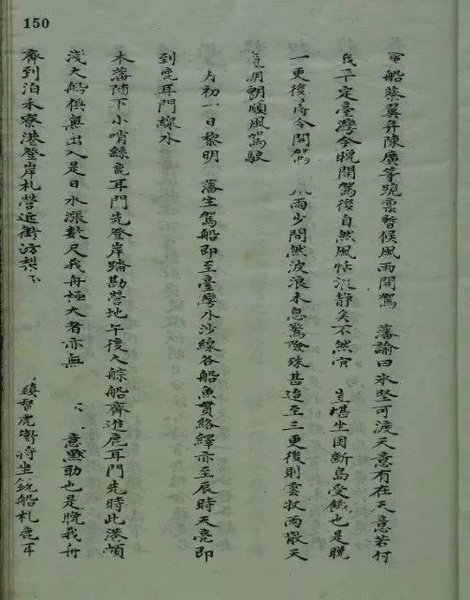 150
船蔡翼并陳廣等跪稟暫候風雨開駕 藩諭曰氷堅可渡天意有在天意若付
我平定臺灣今晚開駕後自然風恬浪静矣不然官 豈堪坐困斷島受餓也是晚
一更後 令開駕 風雨少間然波浪未息驚險殊甚迨至三更後則雲收雨散天
氣明朗順風駕駛
月初一日黎明 藩坐駕船即至臺灣外沙線各船魚貫絡繹亦至辰時天亮即
到鹿耳門線外
本藩隨下小哨繇鹿耳門先登岸踏勘營地午後大䑸船齊進鹿耳門先時此港頗
淺大船俱無出入是日水漲數尺我舟極大者亦無 意黙助也是晚我舟
齊到泊禾寮港登岸札營近街坊梨 鎮督虎衛將坐銃船札鹿耳